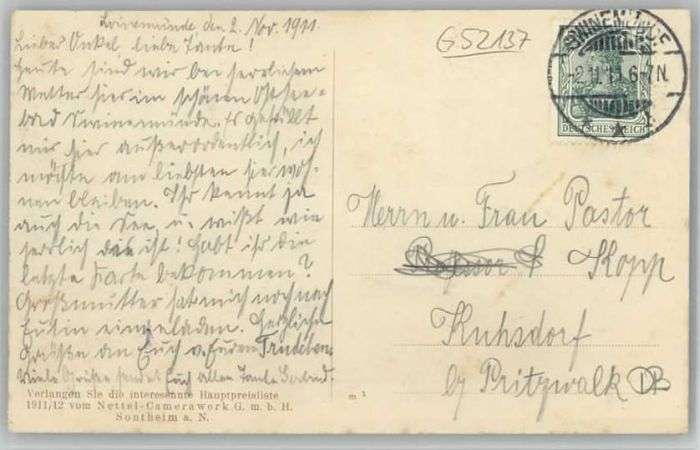 Swinemünde den 2. Nov. 1911.
Lieber Onkel liebe Tante!
Heute sind wir bei herrlichem
Wetter hier im schönen Ostsee-
bad Swinemünde. Es gefällt
mir hier außerordentlich, ich
möchte am liebsten hier woh-
nen bleiben. Ihr kennt ja
auch die See u. wißt wie
herrlich das ist! Habt ihr die
letzte Karte bekommen?
Großmutter hat mich noch nach
Eutin eingeladen. Herzliche
Grüße an Euch v. Euren Trudchen.
Viele Grüße sendet Euch allen Tante
Verlangen Sie die interessante Hauptpreisliste
1911/12 vom Nettel-Camerawerk G. m. b. H.
Sontheim a. N.
m 1
G52137
SWINEMÜNDE
-2.11.11.6-7N.
DEUTSCHES REICH
Herrn u. Frau Pastor
Kopp
Kuhsdorf
b/ Pritzwalk